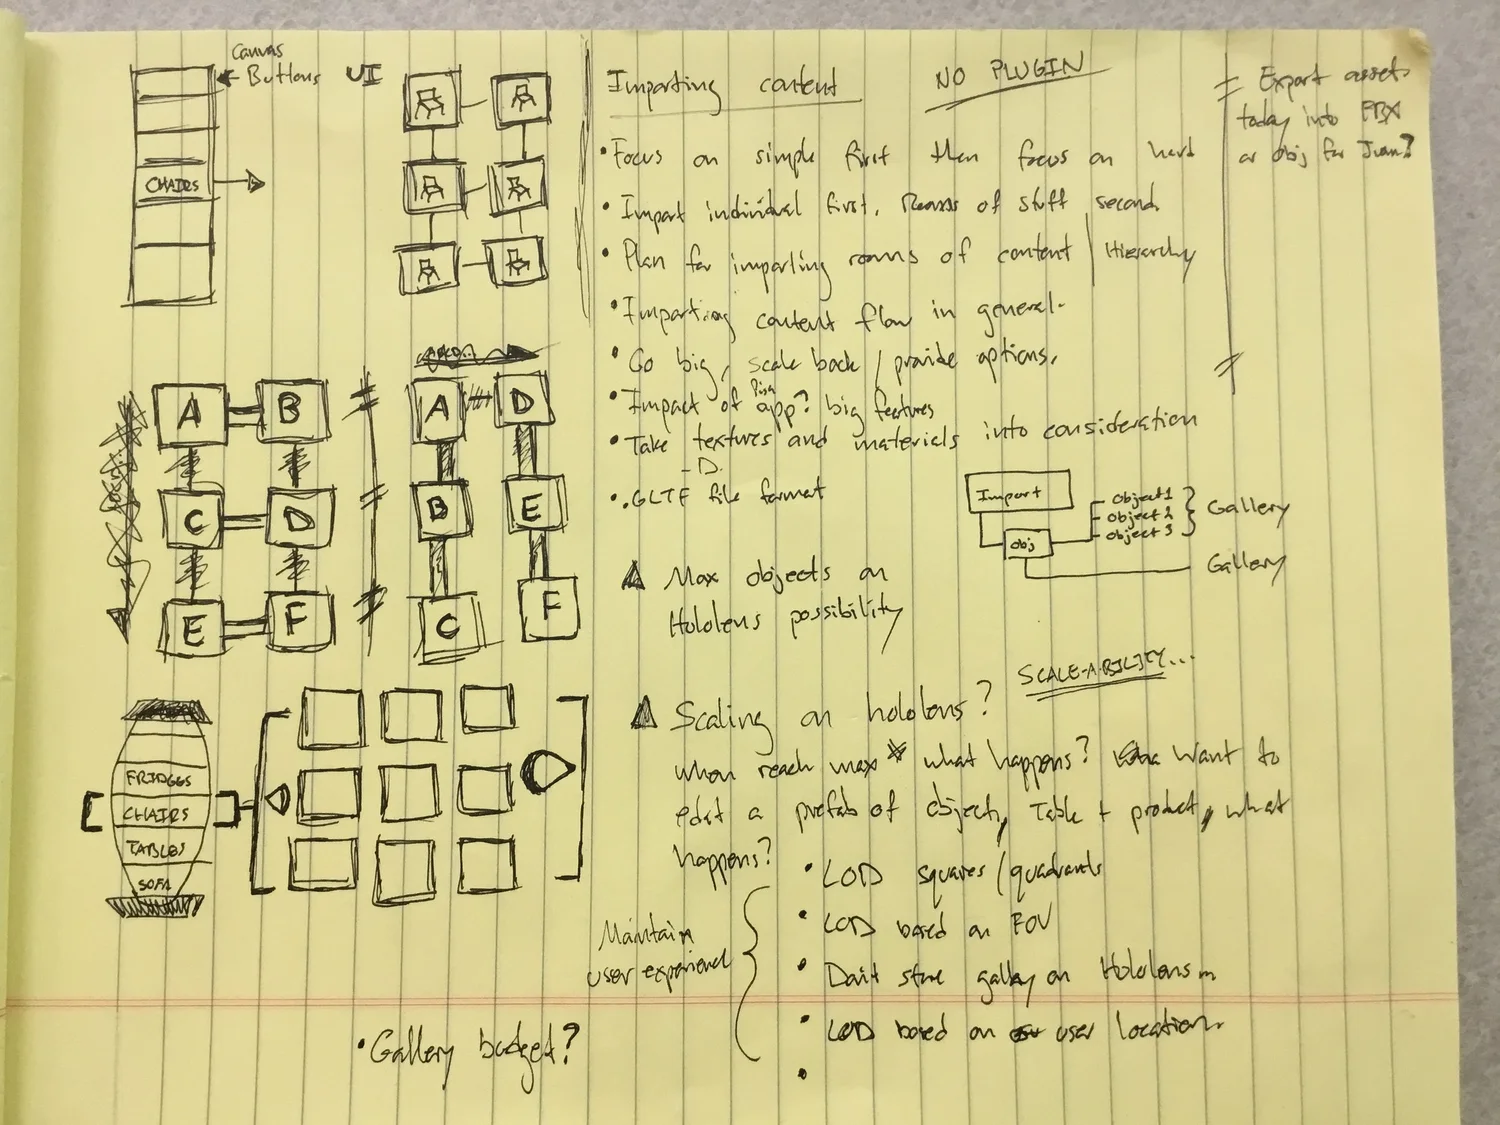 Canvas
← Buttons UI
CHAIRS
A B
C D
E F
A D
B E
C F
FRIDGES
CHAIRS
TABLES
SOFA
• Gallery budget?
Importing content NO PLUGIN
• Focus on simple first then focus on hard
• Import individual first. Rooms of stuff second.
• Plan for importing rooms of content / Hierarchy
• Importing content flow in general.
• Go big, scale back / provide options.
• Impact of app? big features
• Take textures and materials into consideration
• .GLTF file format
Export assets
today into FBX
or obj for Juan?
Import
Obj
Object 1
Object 2
Object 3
Gallery
Gallery
Max objects on
Hololens possibility
SCALE-A-BILITY...
Scaling on hololens?
when reach max what happens? Want to
edit a prefab of objects, Table + product, what
happens?
Maintain
user experience
• LOD squares / quadrants
• LOD based on FOV
• Don't store gallery on Hololens
• LOD based on user location.
•